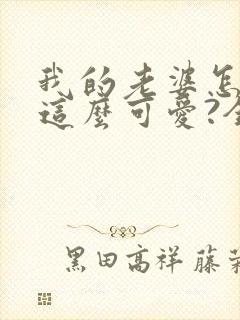 我的老婆怎
這麼可愛?
黑田高祥 藤